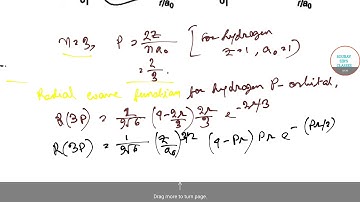 01 r/a0 01 r/a0
n=3, P = 2Z/na0 [for hydrogen
Z=1, a0=1]
= 2/3.
Radial wave function for hydrogen P-orbital,
R(3P) = 1/9√6 (4-2r/3) 2r/3 e^-2r/3
R(3P) = 1/9√6 (Z/a0)^3/2 (4-Pr) Pr e^-(Pr/2)
Drag more to turn page.